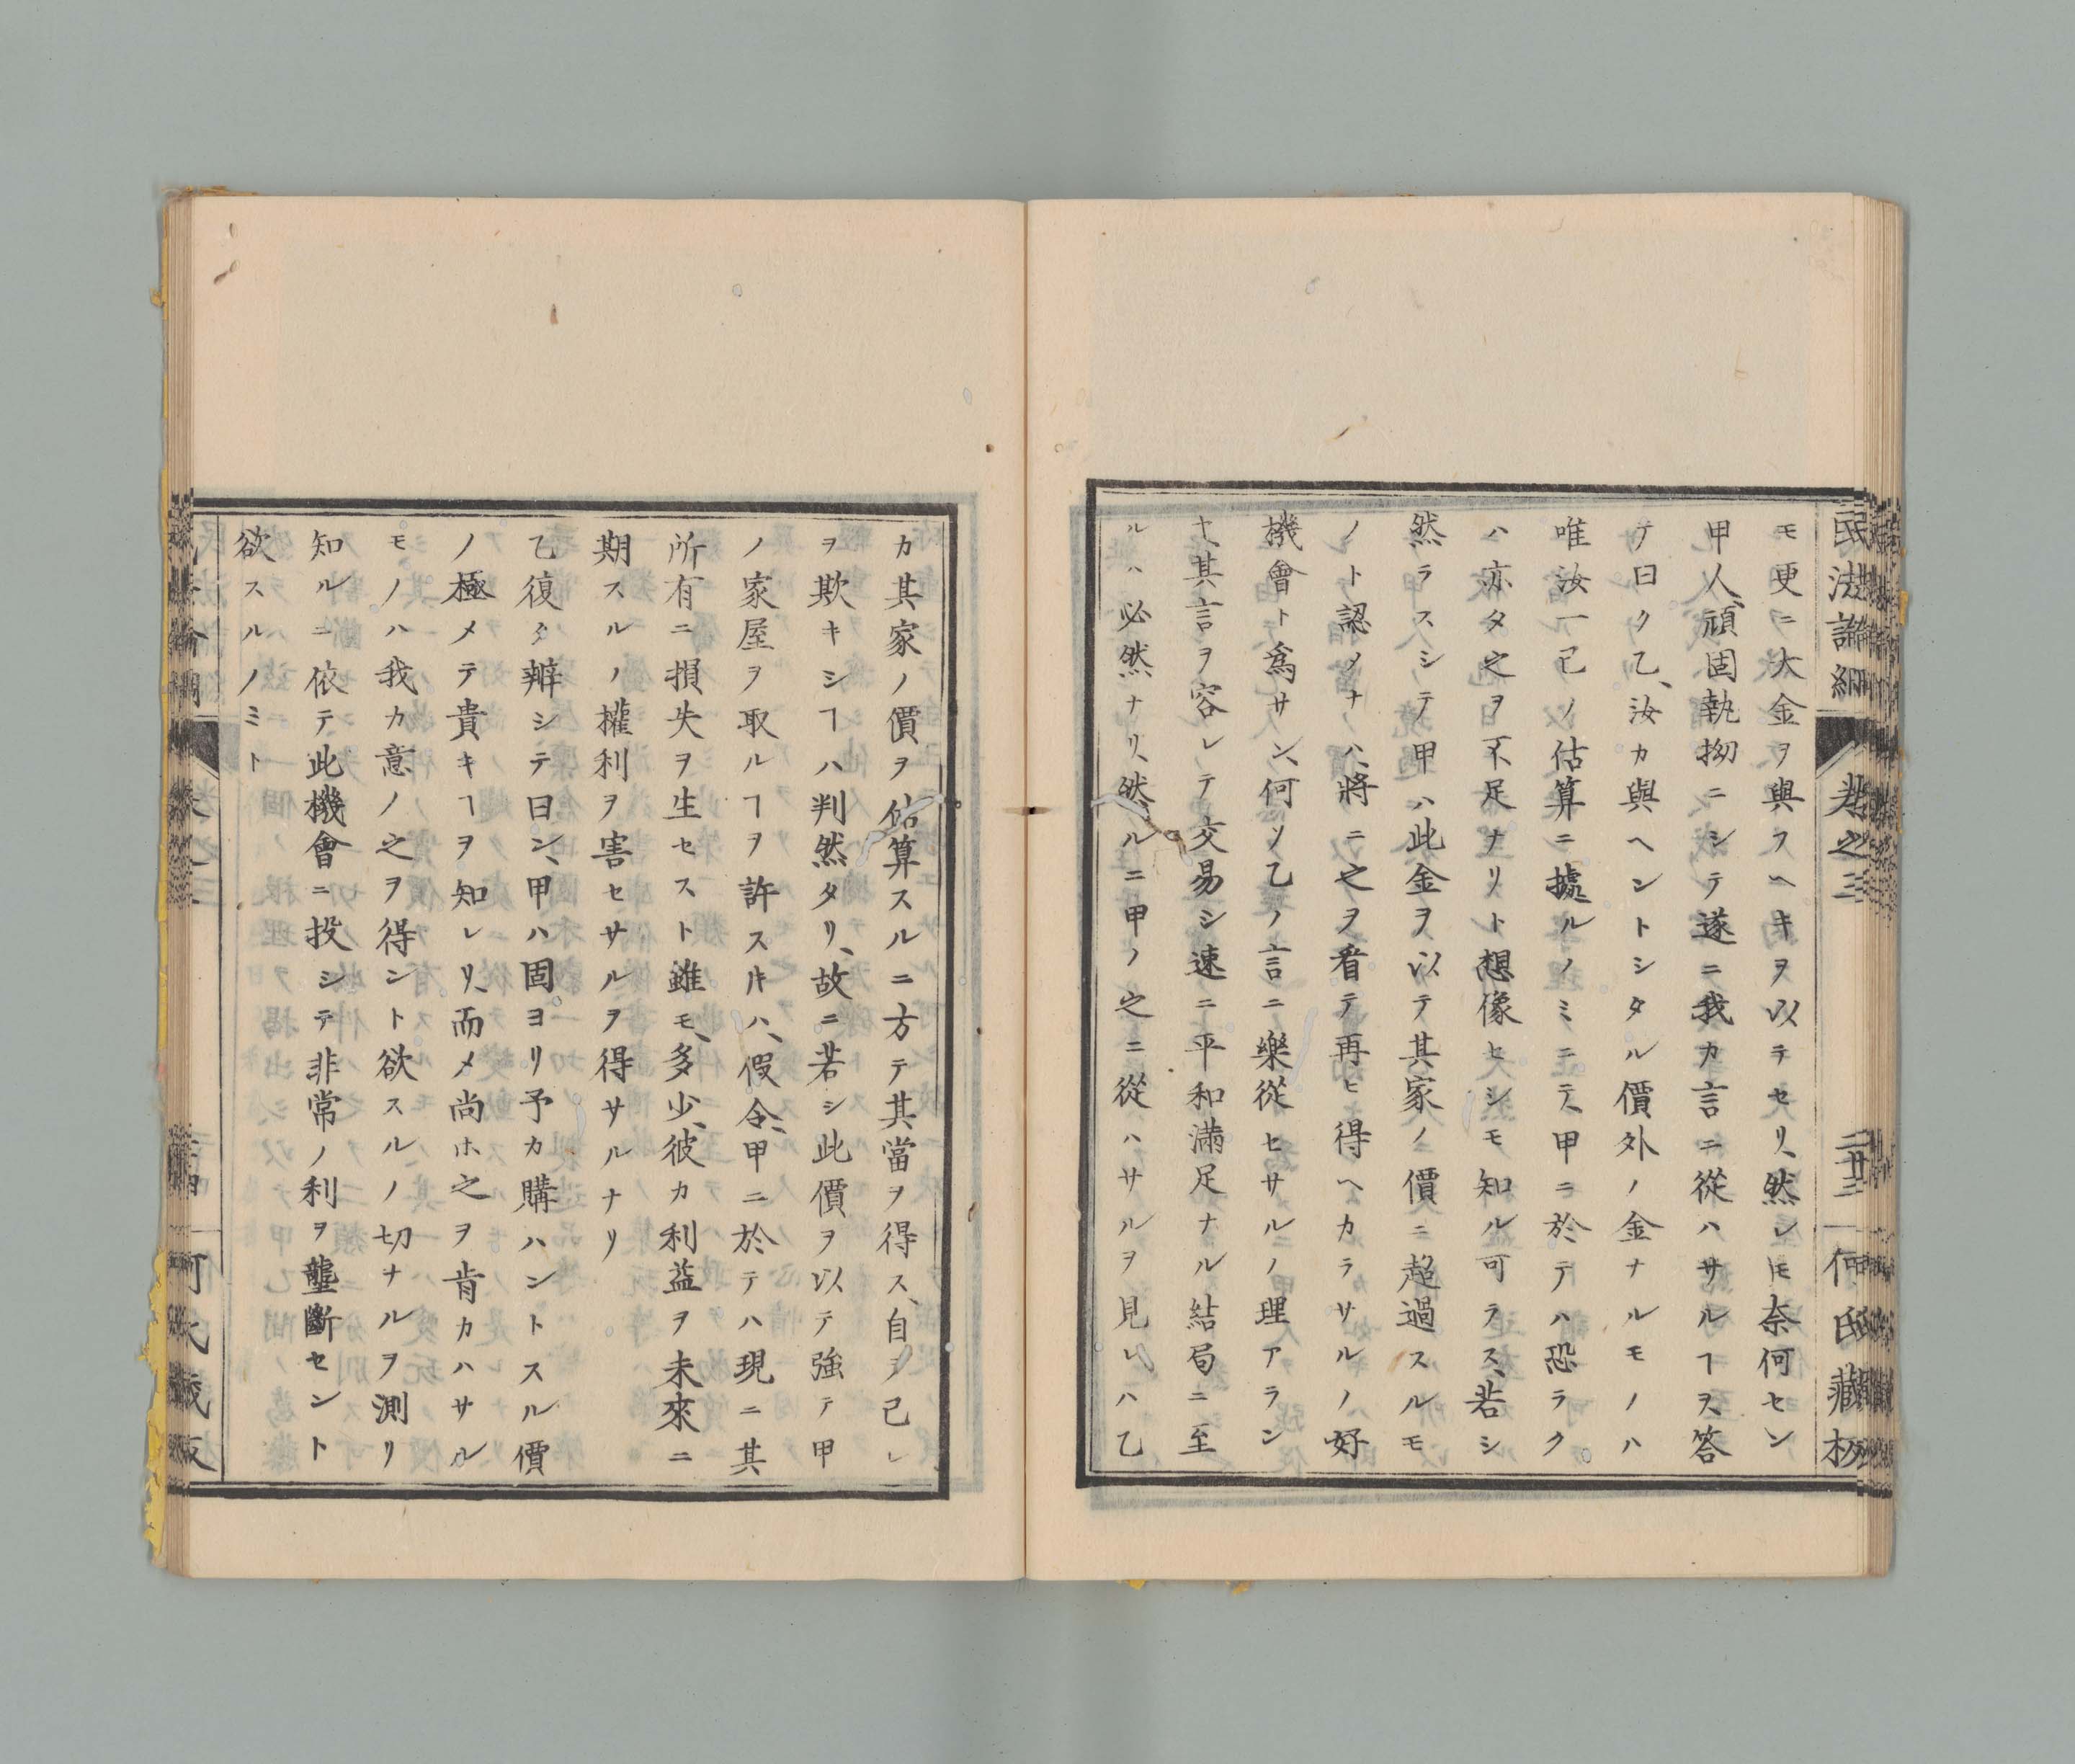 民法論綱
卷之三
二十三
何氏藏板
モ更ニ大金ヲ與フヘキヲ以テセリ、然レ𪜈奈何セン
甲人、頑固執拗ニシテ遂ニ我カ言ニ從ハサルヿヲ、答
テ曰ク、乙、汝カ與ヘントシタル價外ノ金ナルモノハ
唯汝一已ノ估算ニ據ルノミニテ、甲ニ於テハ恐ラク
ハ亦タ之ヲ不足ナリト想像セシモ知ル可ラス、若シ
然ラスシテ甲ハ此金ヲ以テ其家ノ價ニ超過スルモ
ノト認メナハ、將ニ之ヲ看テ再ヒ得ヘカラサルノ好
機會ト爲サン、何ソ乙ノ言ニ樂從セサルノ理アラン
ヤ、其言ヲ容レテ交易シ速ニ平和滿足ナル結局ニ至
ルハ必然ナリ、然ルニ甲ノ之ニ從ハサルヲ見レハ乙
カ其家ノ價ヲ估算スルニ方テ其當ヲ得ス、自ヲ己レ
ヲ欺キシヿハ判然タリ、故ニ若シ此價ヲ以テ強テ甲
ノ家屋ヲ取ルヿヲ許ス𪜈ハ、假令、甲ニ於テハ現ニ其
所有ニ損失ヲ生セスト雖モ、多少、彼カ利益ヲ未來ニ
期スルノ權利ヲ害セサルヲ得サルナリ
乙復タ辨シテ曰ン、甲ハ固ヨリ予カ購ハントスル價
ノ極メテ貴キヿヲ知レリ、而メ尚ホ之ヲ肯カハサル
モノハ我カ意ノ之ヲ得ント欲スルノ切ナルヲ測リ
知ルニ依テ此機會ニ投シテ非常ノ利ヲ壟斷セント
欲スルノミト
卷之三
何氏藏板